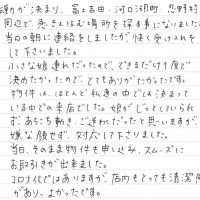 嫁が決まり、富士吉田・河口湖町・忍野村
周辺で急きょ住む場所を探す事になりました。
当日の朝に連絡をしましたが、快く受け入れを
して下さいました。
小さな娘連れだったので、できるだけ1度で
決めたかったので、とてもありがたかったです。
物件は、ほとんど私達の中では決まって
いる中での来店でした。娘がじっとしていられ
ず、あちこち動き、ご迷わくだったと思いますが、
嫌な顔せず、対応して下さりました。
当日、そのまま物件も申し込み、スムーズに
お取引きが出来ました。
コロナ化ではありますが、店内もとても清潔感
があり、よかったです。